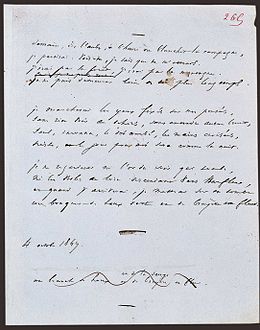 265
Demain, dès l'aube, à l'heure où blanchit la campagne,
je partirai. Vois-tu, je sais que tu m'attends.
J'irai par la forêt, j'irai par la montagne.
je ne puis demeurer loin de toi plus longtemps.
je marcherai les yeux fixés sur mes pensées,
sans rien voir au dehors, sans entendre aucun bruit,
seul, inconnu, le dos courbé, les mains croisées,
triste, et le jour pour moi sera comme la nuit.
je ne regarderai ni l'or du soir qui tombe,
ni les voiles au loin descendant vers Harfleur,
et quand j'arriverai, je mettrai sur ta tombe
un bouquet de houx vert et de bruyère en fleur.
4 octobre 1847.